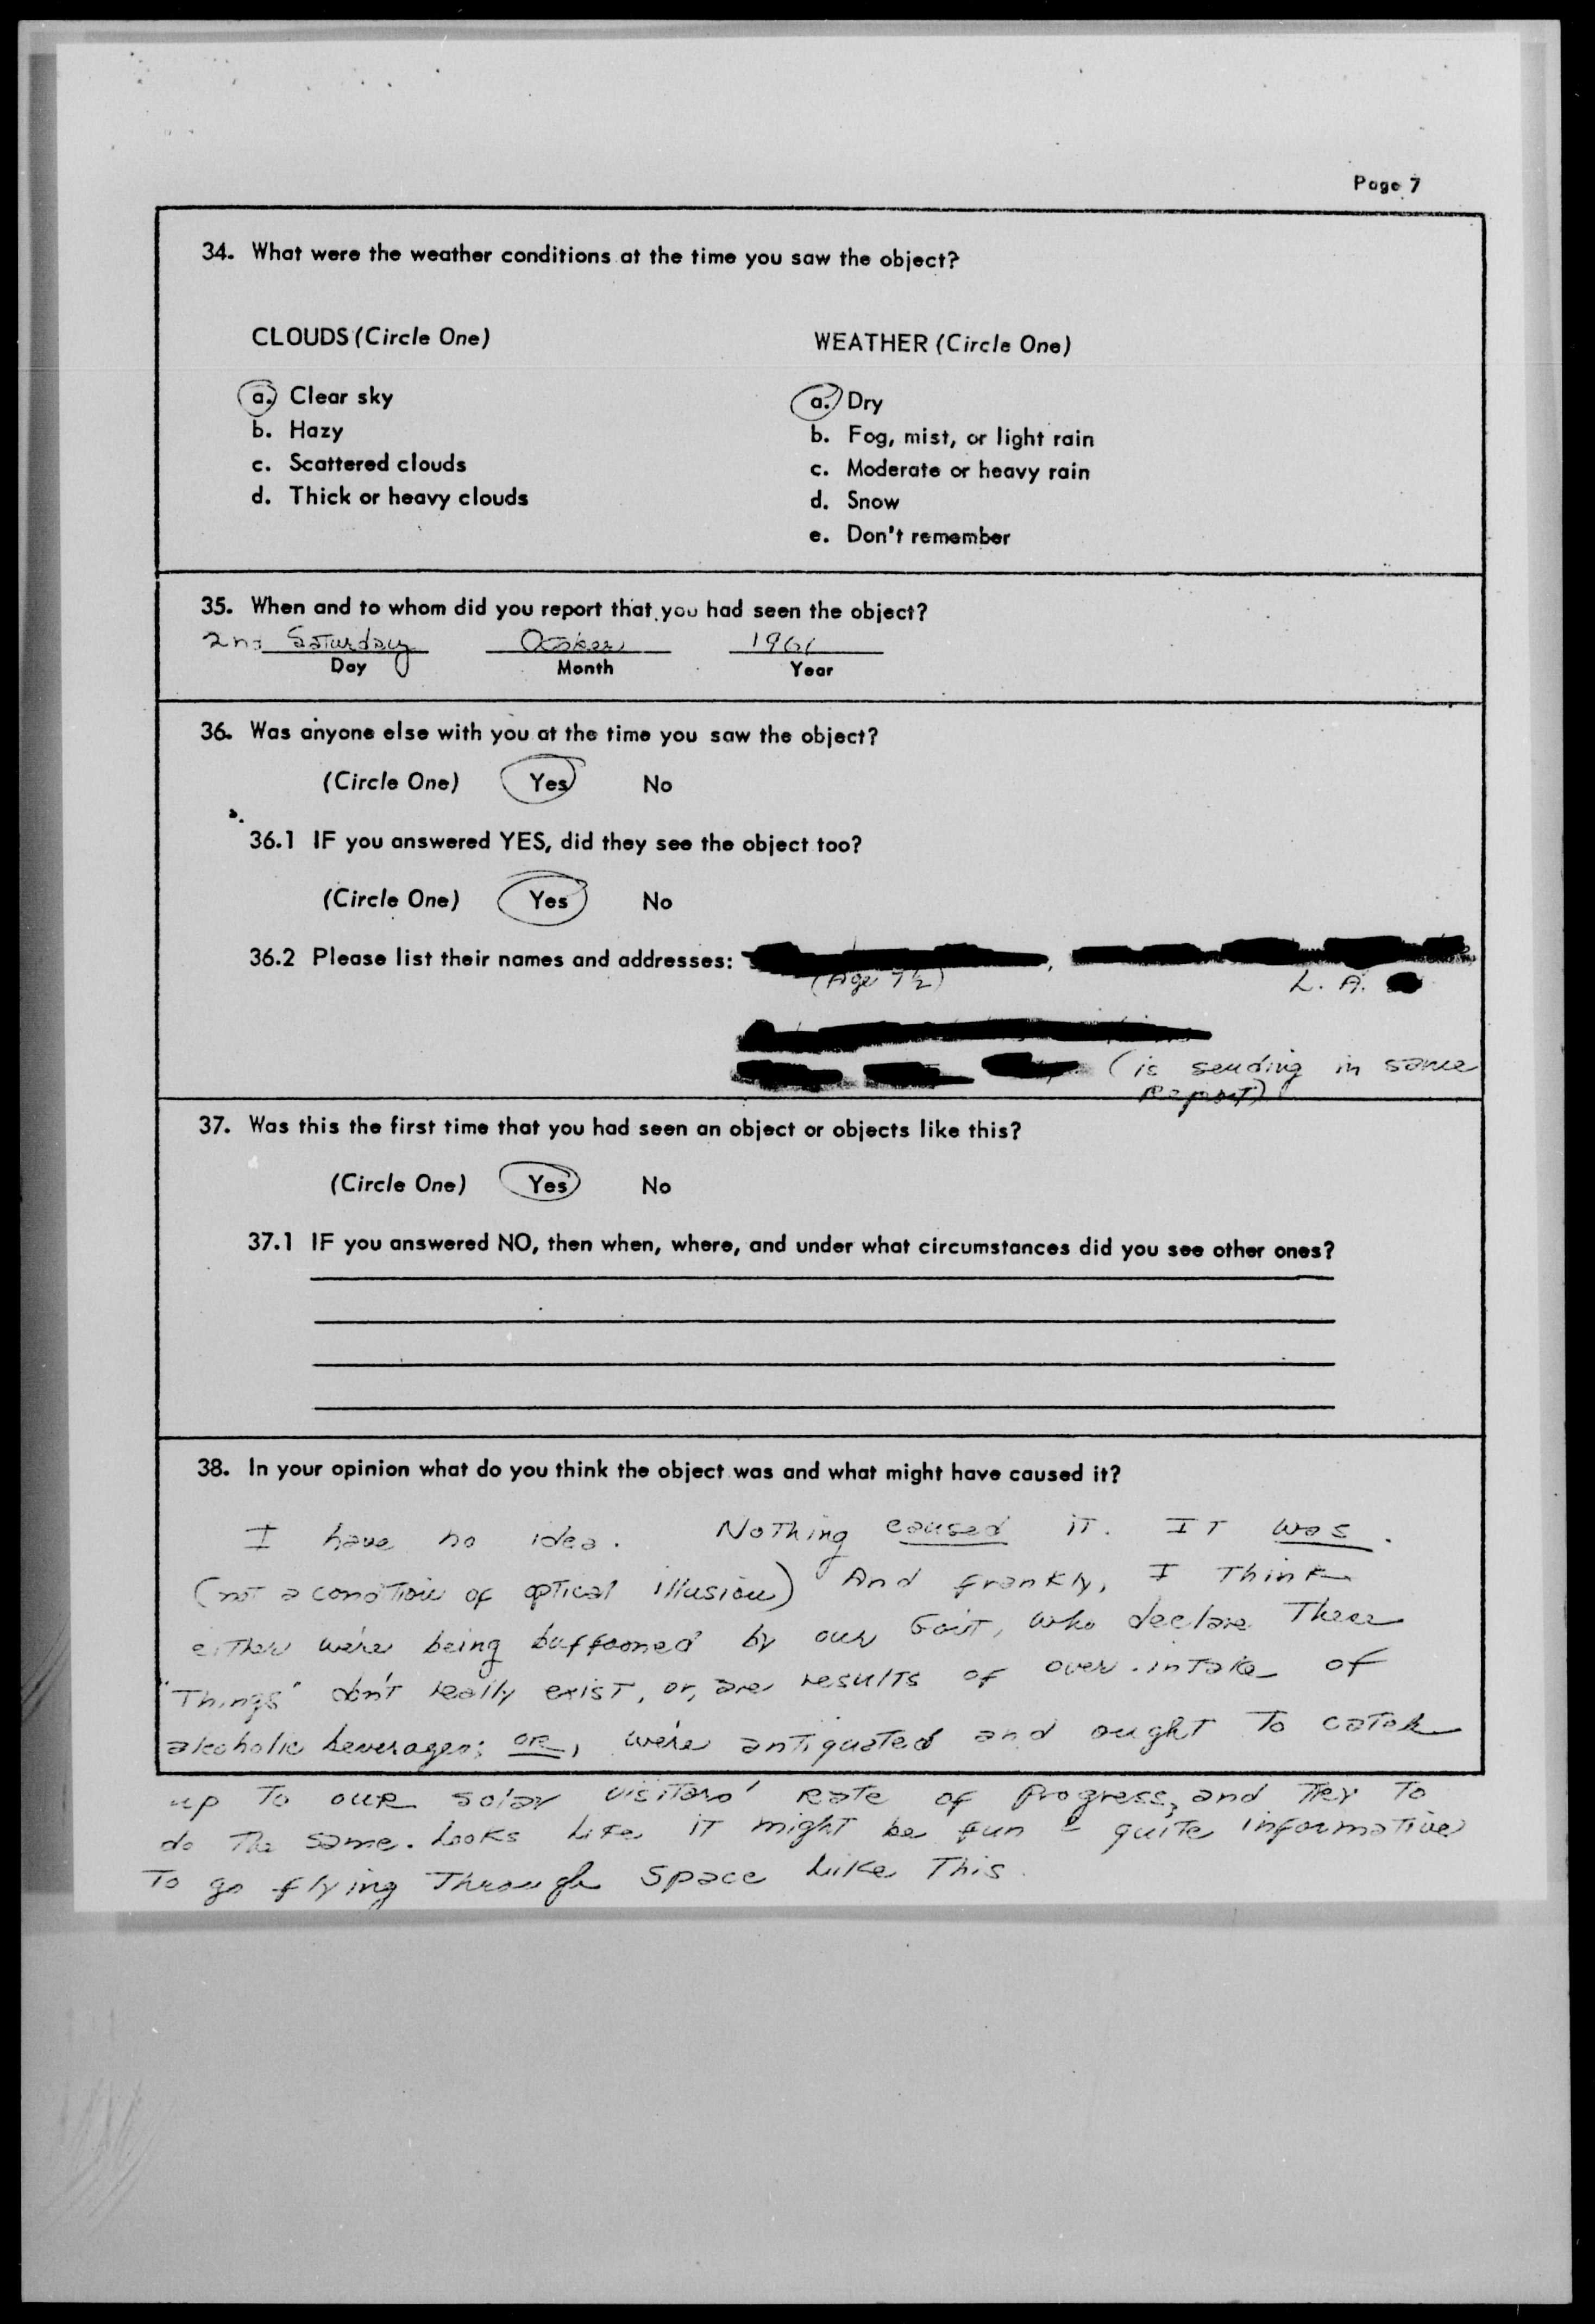 Page 7
34. What were the weather conditions at the time you saw the object?
CLOUDS (Circle One)
WEATHER (Circle One)
a. Clear sky
b. Hazy
c. Scattered clouds
d. Thick or heavy clouds
a. Dry
b. Fog, mist, or light rain
c. Moderate or heavy rain
d. Snow
e. Don't remember
35. When and to whom did you report that you had seen the object?
2nd Saturday 1961
Day Month Year
36. Was anyone else with you at the time you saw the object?
(Circle One) Yes No
36.1 IF you answered YES, did they see the object too?
(Circle One) Yes No
36.2 Please list their names and addresses:
(Age 7½) L. A.
(is sending in same
Report)
37. Was this the first time that you had seen an object or objects like this?
(Circle One) Yes No
37.1 IF you answered NO, then when, where, and under what circumstances did you see other ones?
38. In your opinion what do you think the object was and what might have caused it?
I have no idea. Nothing caused it. It was.
(not a condition of optical illusion) And frankly, I think
either we're being buffooned by our Gov't, who declare these
"Things" don't really exist, or, are results of over-intake of
alcoholic beverages; or, we're antiquated and ought to catch
up to our solar visitors' rate of progress, and try to
do the same. Looks like it might be fun & quite informative
to go flying through space like this.